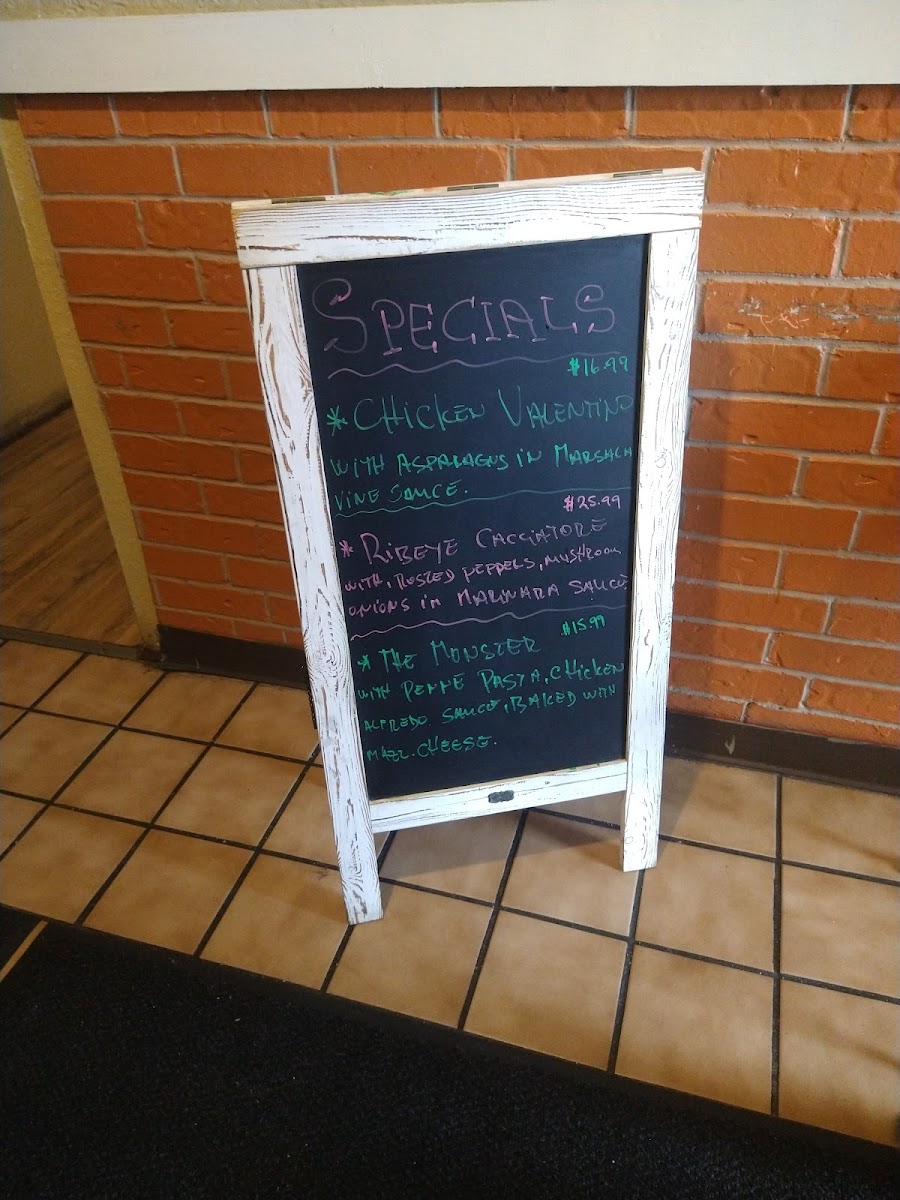 SPECIALS
$16.99
* CHICKEN VALENTINO
WITH ASPARAGUS IN MARSALA
VINE SAUCE.
$25.99
* RIBEYE CACCIATORE
WITH, ROSTED PEPPERS, MUSHROOM
ONIONS IN MARINARA SAUCE
$15.99
* THE MONSTER
WITH PENNE PASTA, CHICKEN
ALFREDO SAUCE, BAKED WITH
MAZZ. CHEESE.